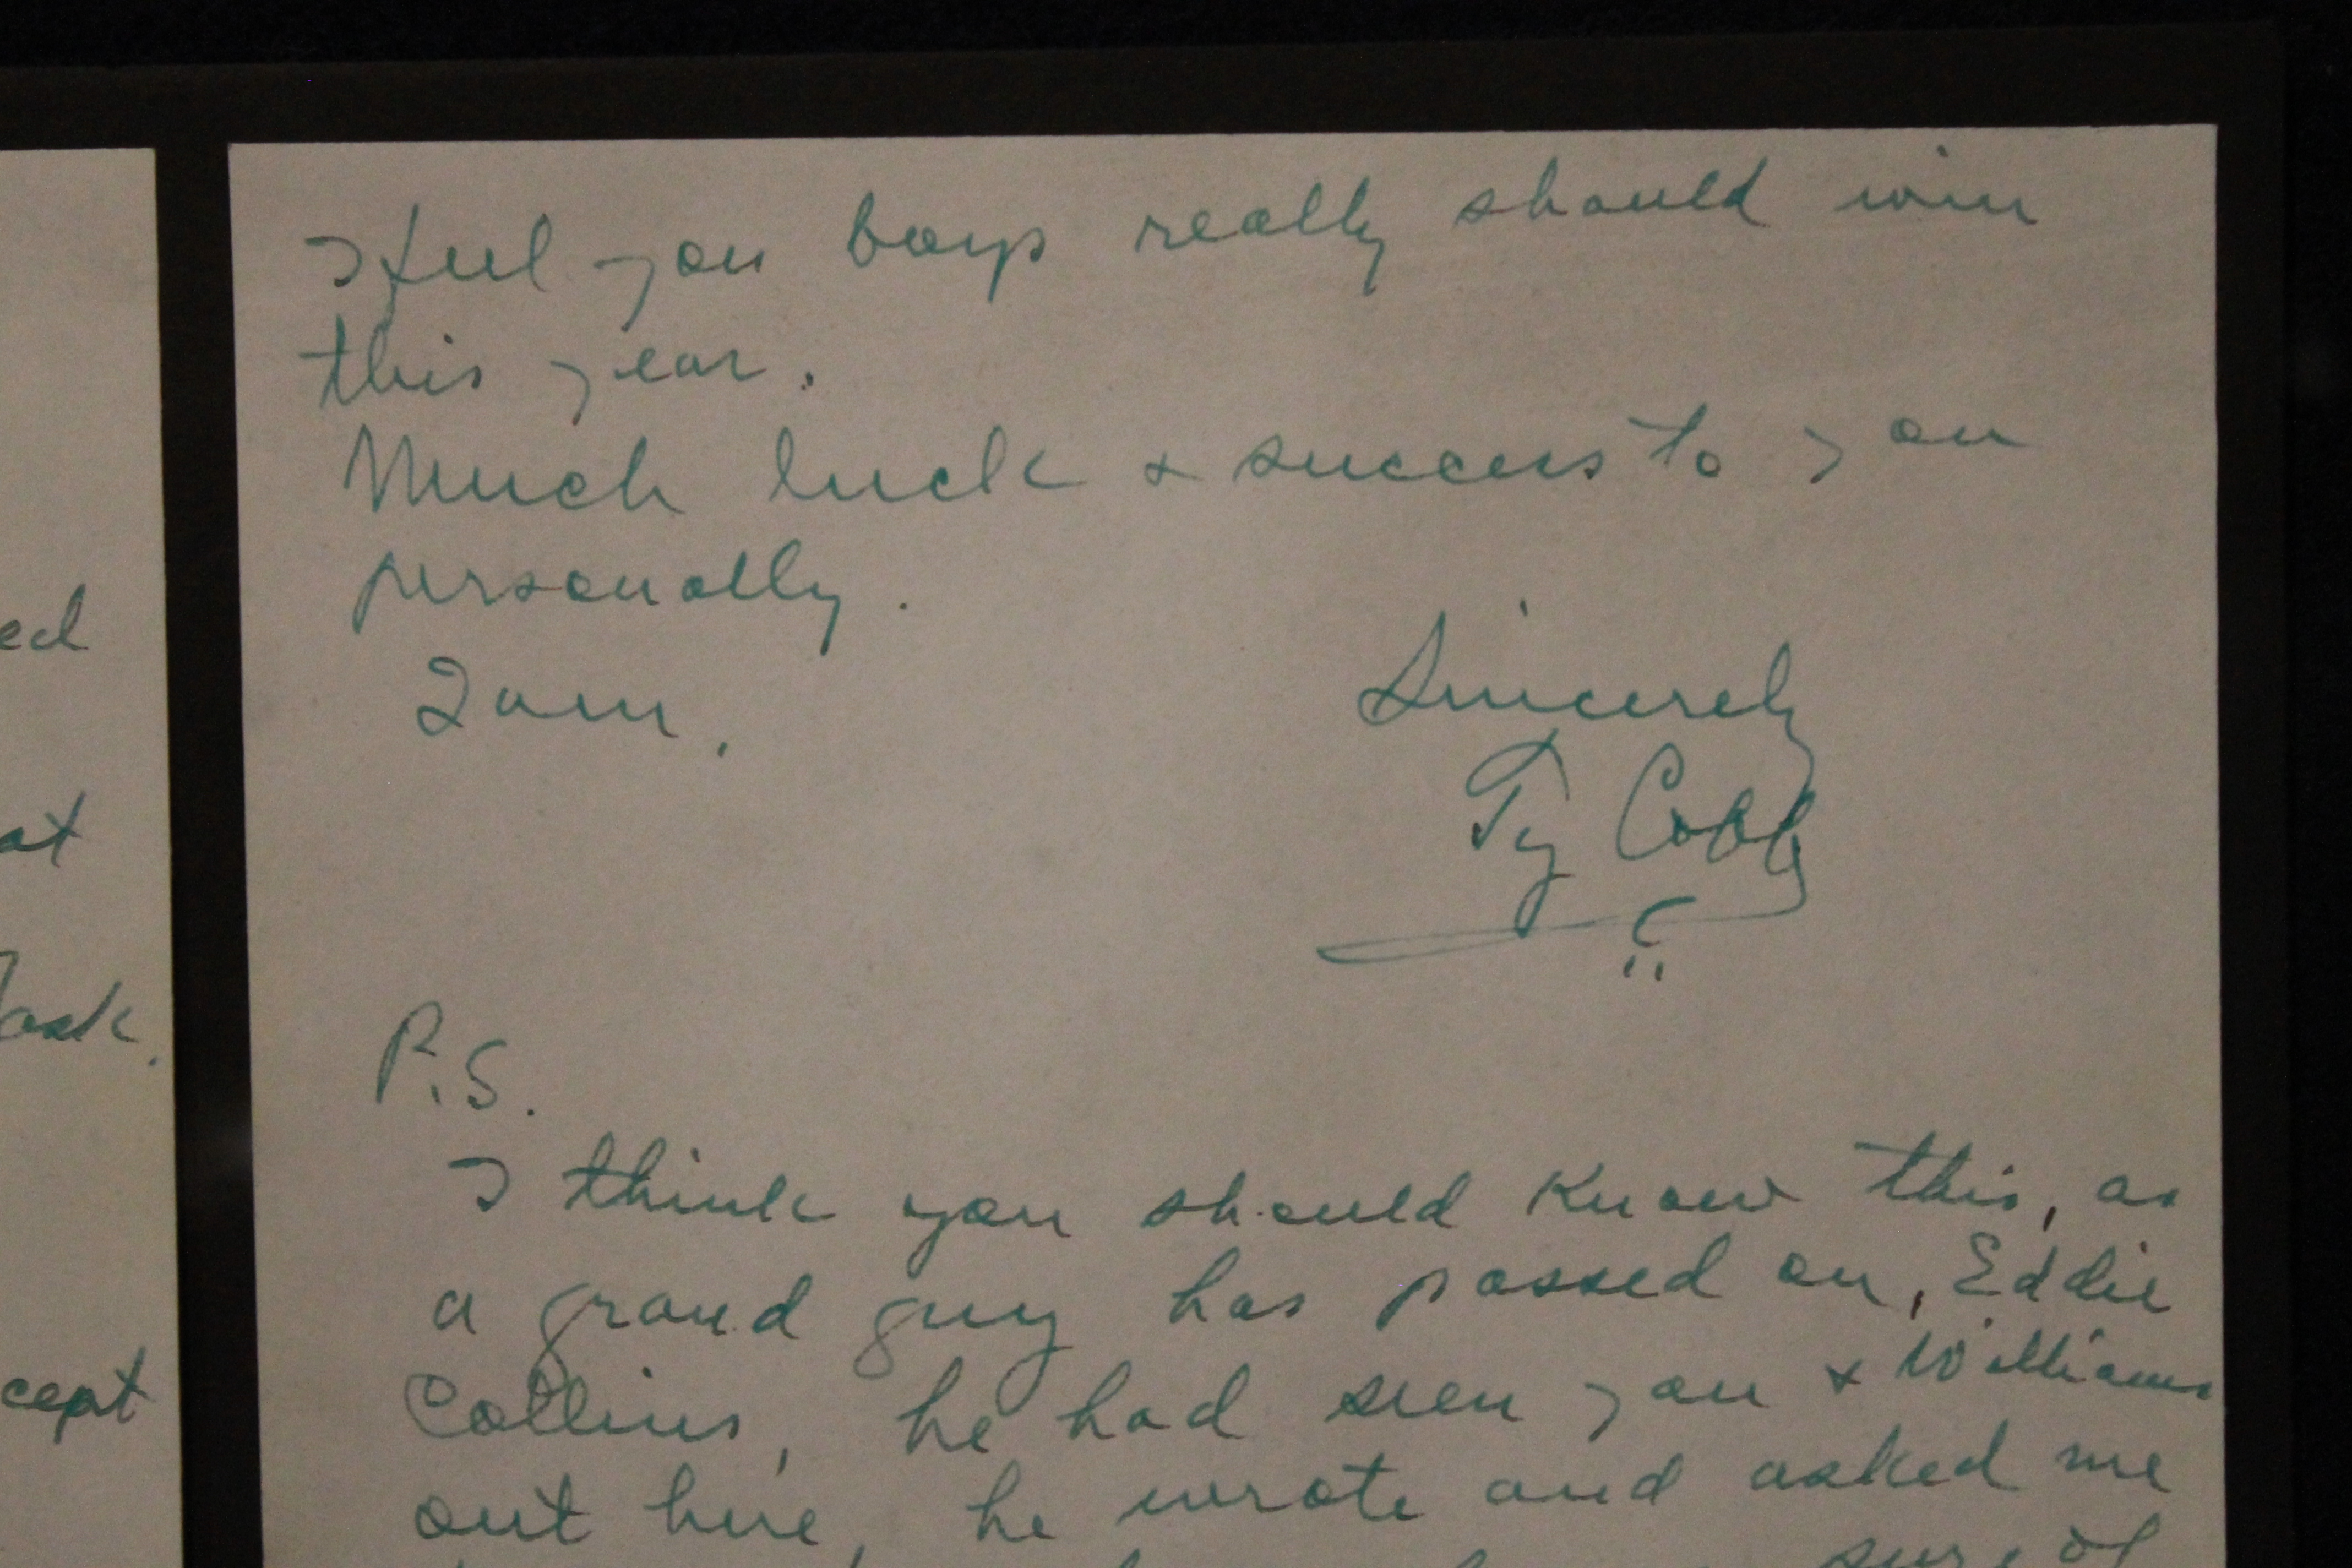 ed
at
ask.
cept
I feel you boys really should win
this year.
Much luck & success to you
personally.
I am,
Sincerely
Ty Cobb
P.S.
I think you should know this, as
a grand guy has passed on, Eddie
Collins, he had seen you & Williams
out here, he wrote and asked me
sure of